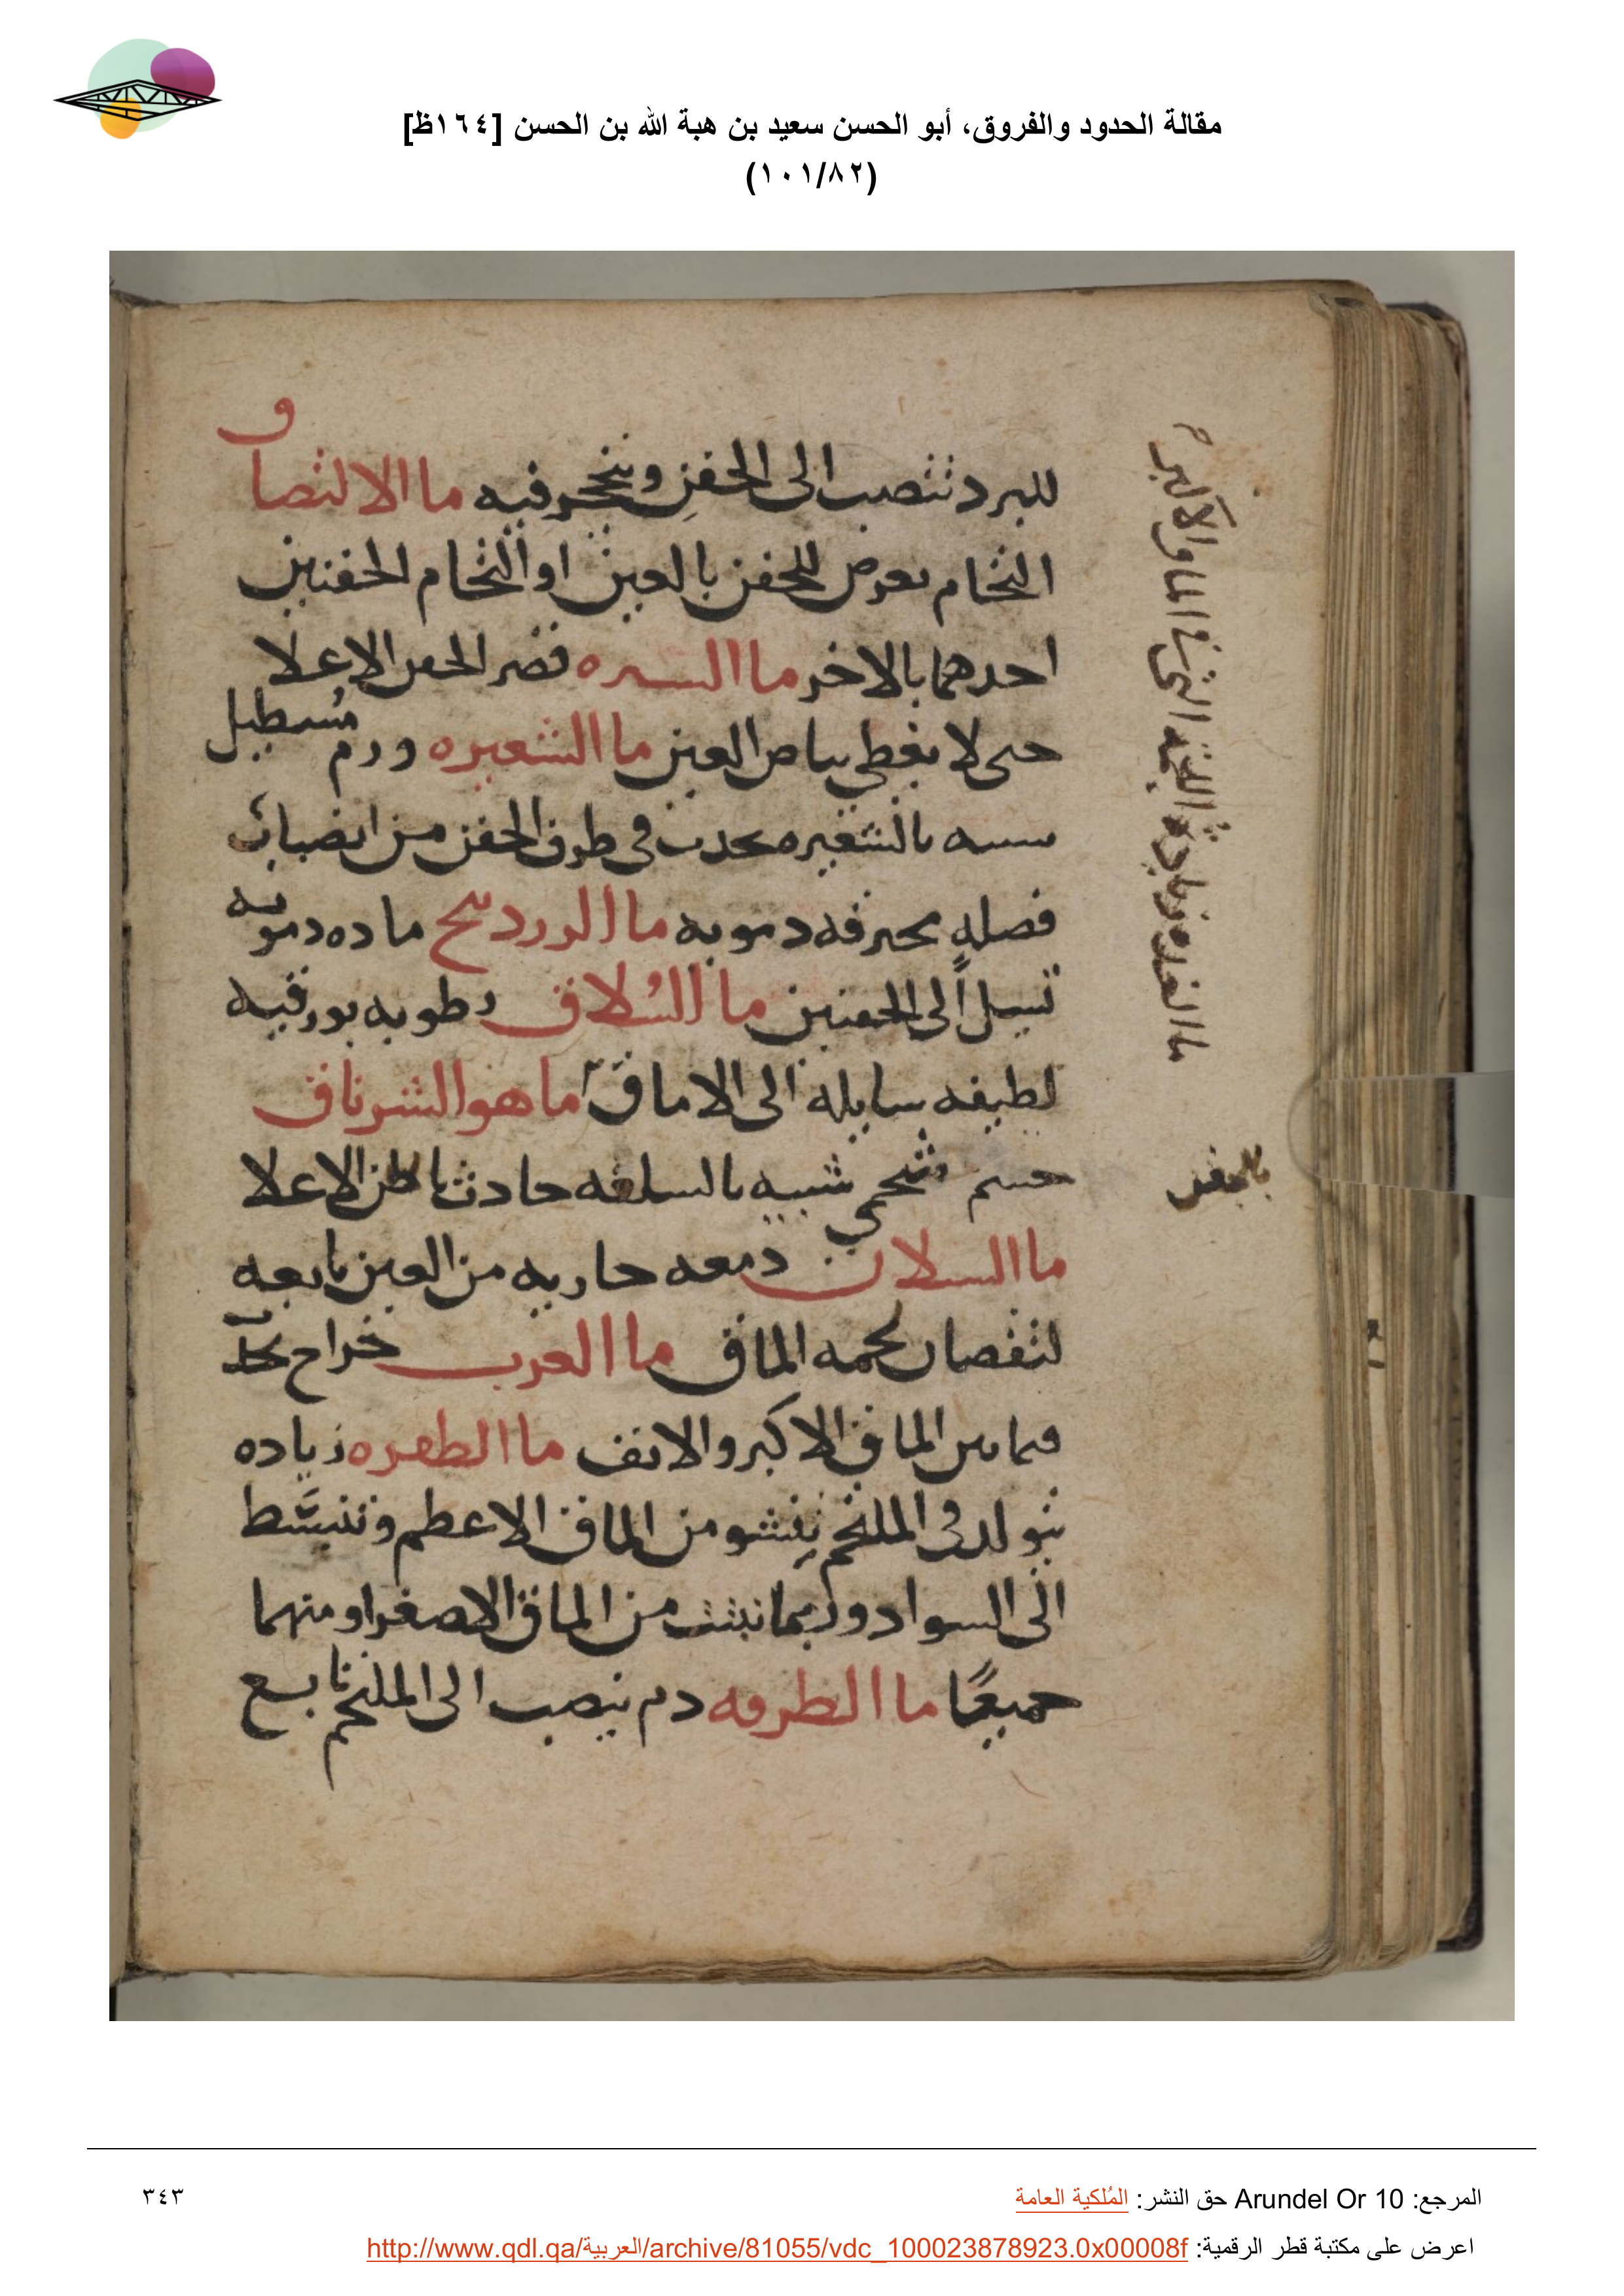 مقالة الحدود والفروق، أبو الحسن سعيد بن هبة الله بن الحسن [١٦٤ظ]
(١٠١/٨٢)
للبرد تنصب الى الجفن وتتحجر فيه ما الالتصاق
التحام يعرض للجفن بالعين او التحام الجفنين
احدهما بالاخر ما الستره قصر الجفن الاعلا
حتى لا يغطي بياض العين ما الشعيره ورم مستطيل
شبيه بالشعيره يحدث في طرف الجفن من انصباب
فضله محترقه دمويه ما الوردينج ماده دمويه
تسيل الى الجفنين ما السلاق رطوبه بورقيه
لطيفه سايله الى الاماق ما هو الشرناق
جسم شحمي شبيه بالسلعه حادث باطن الاعلا
بالجفن
ما السيلان دمعه جاريه من العين تابعه
لنقصان لحمه الماق ما الغرب خراج
فيما بين الماق الاكبر والانف ما الظفره زياده
تتولد في الملتحم ينشو من الماق الاعظم وتنبسط
الى السواد وربما نبتت من الماق الاصغر او منهما
جميعًا ما الطرفه دم ينصب الى الملتحم تابع
ما الغده زيادة اللحمه التي في الماق الاكبر
المرجع: Arundel Or 10 حق النشر: المُلكية العامة
٣٤٣
اعرض على مكتبة قطر الرقمية: http://www.qdl.qa/العربية/archive/81055/vdc_100023878923.0x00008f